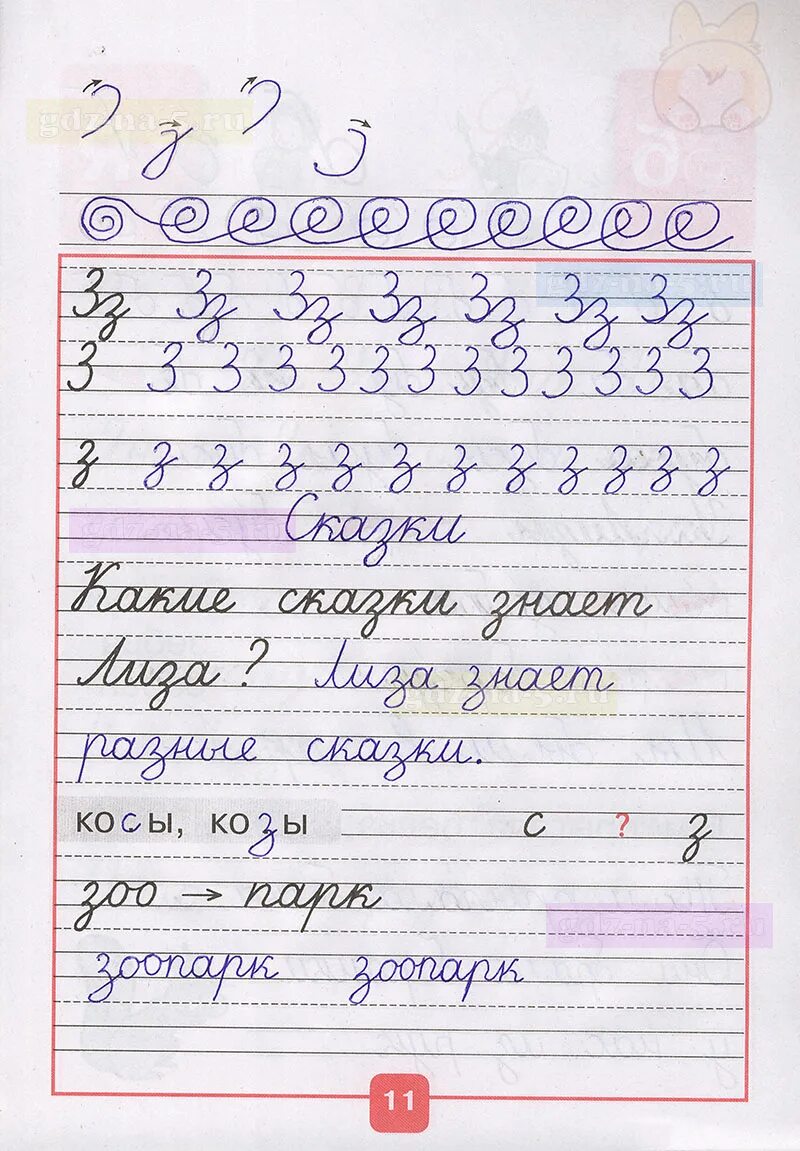 gdz-na-5.ru
Зз Зз Зз Зз Зз Зз Зз
З З З З З З З З З З З З З
з з з з з з з з з з з з
gdz-na-5.ru Сказки
Какие сказки знает
Лиза? Лиза знает
gdz-na-5.ru
разные сказки.
косы, козы с ? з
зоо → парк
gdz-na-5.ru
зоопарк зоопарк
11